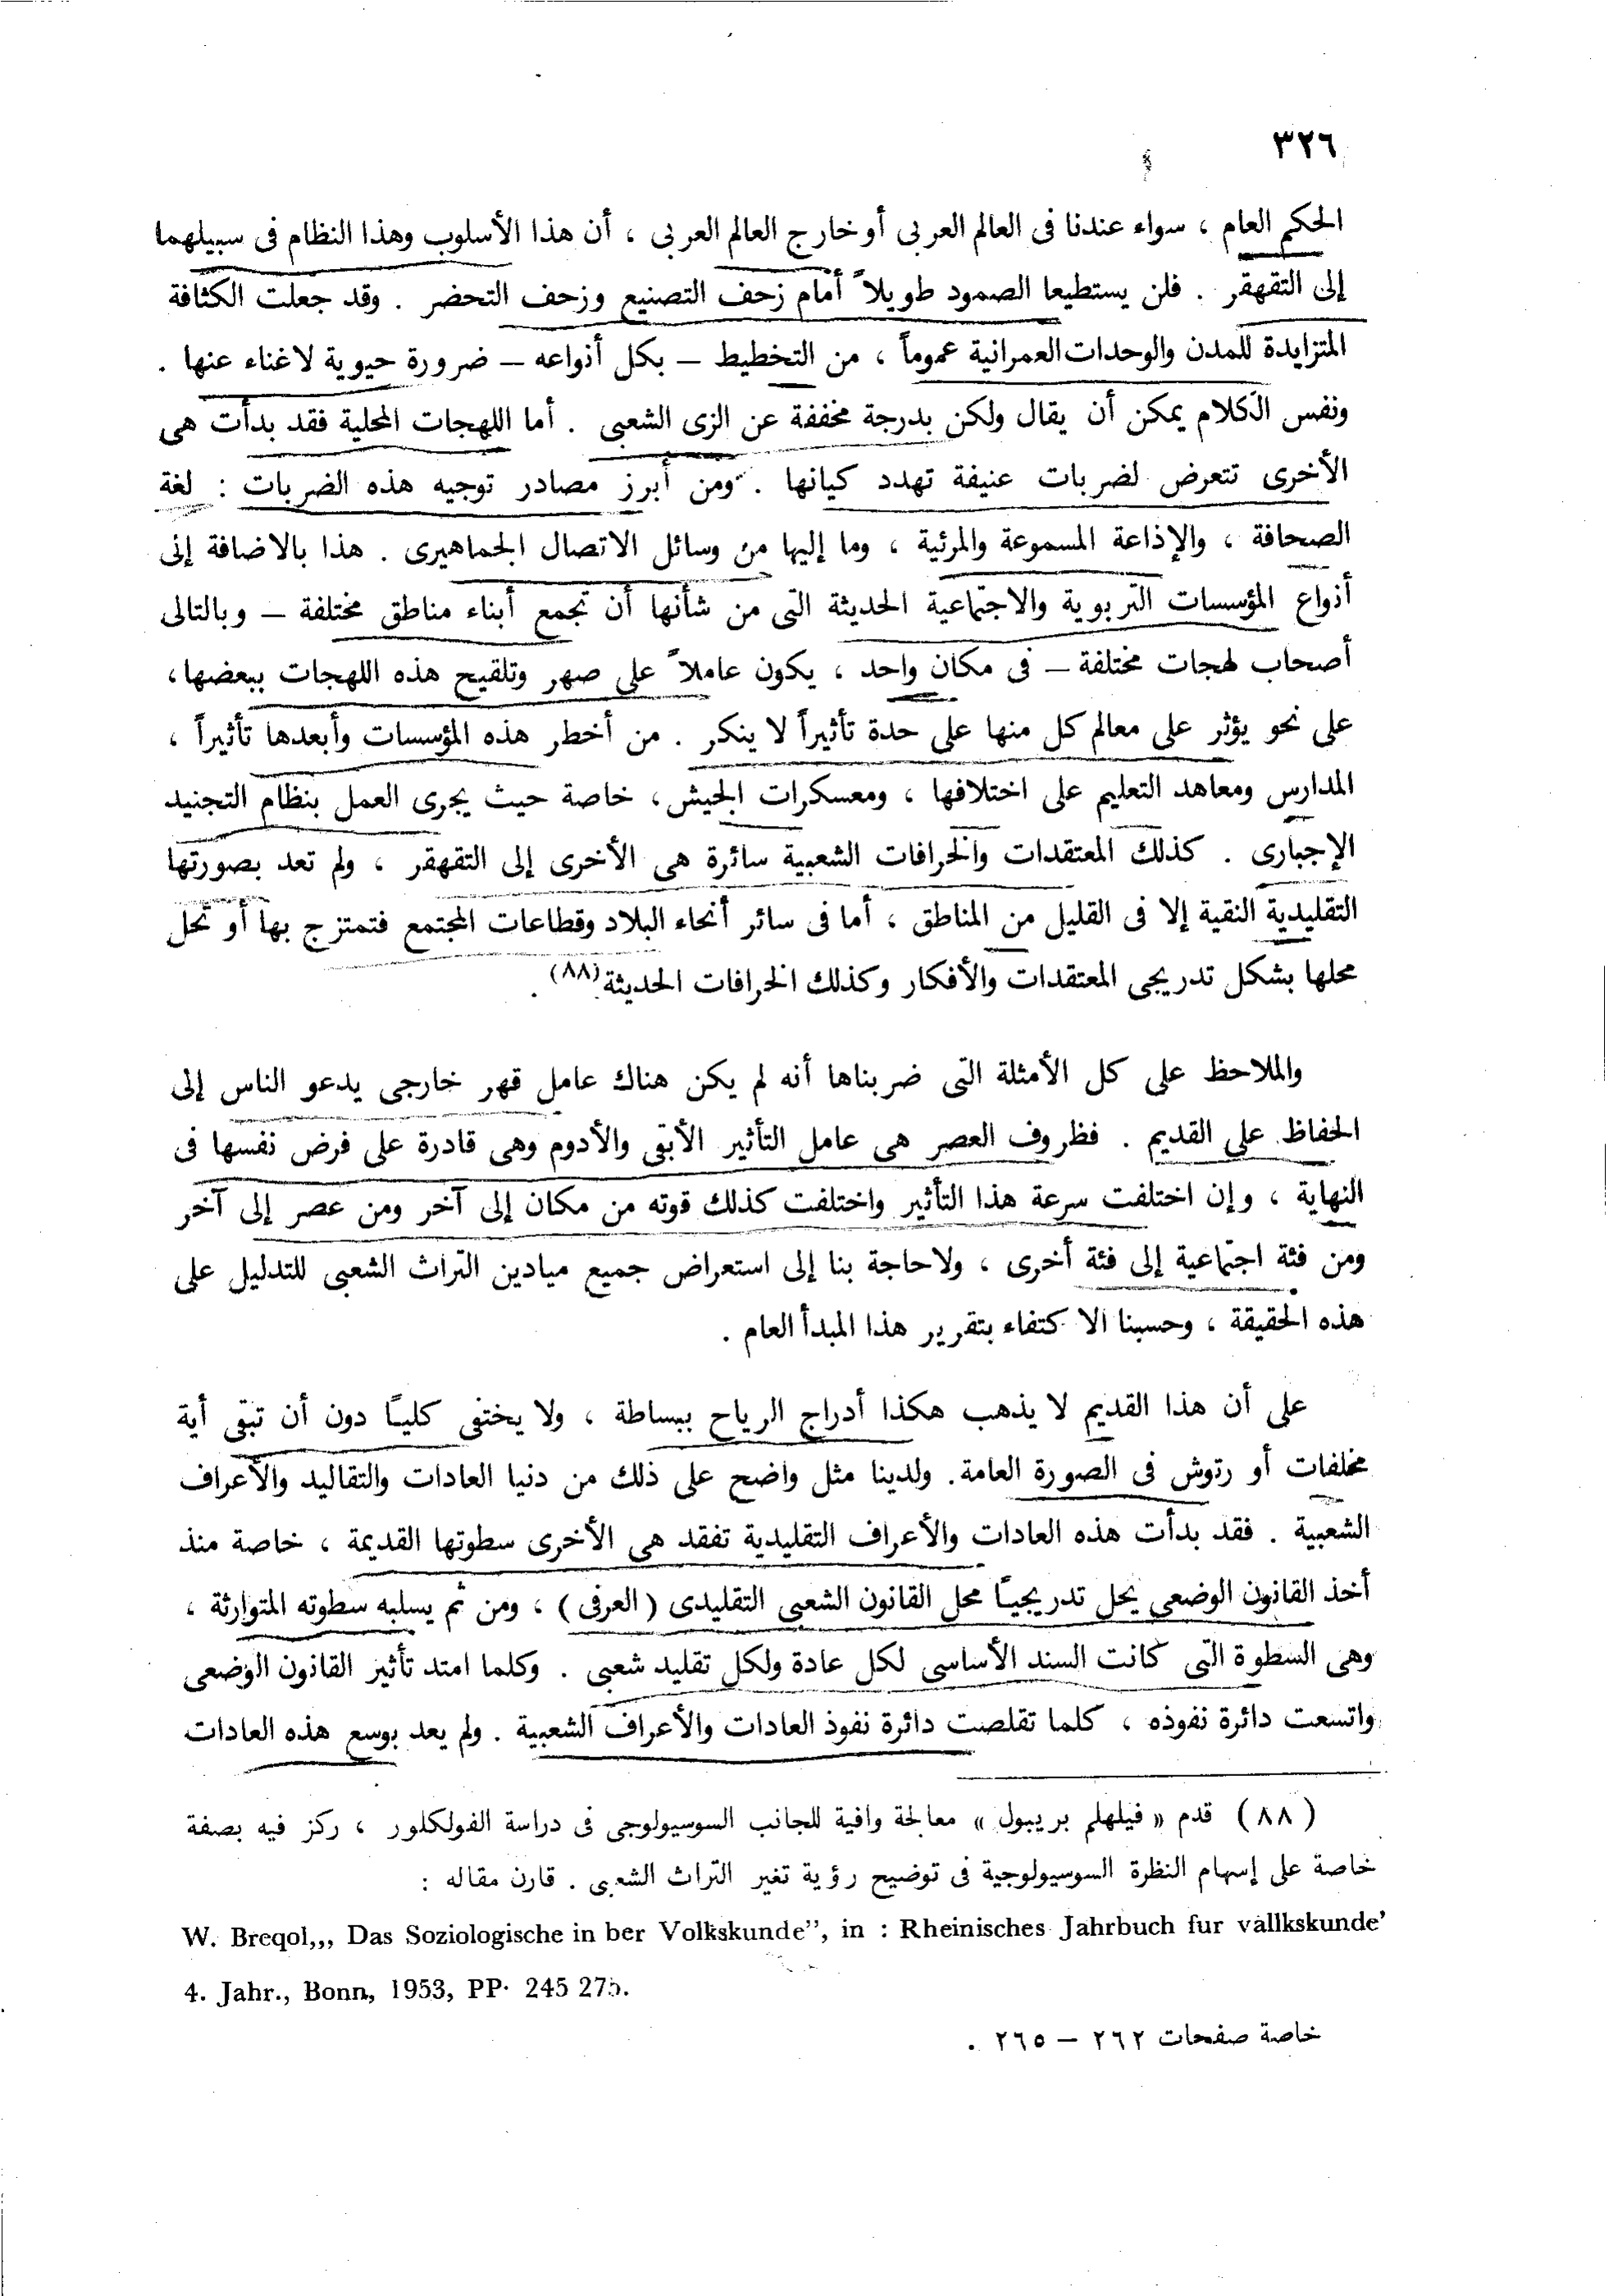 ٣٢٦
الحكم العام ، سواء عندنا فى العالم العربى أو خارج العالم العربى ، أن هذا الأسلوب وهذا النظام فى سبيلهما
إلى التقهقر . فلن يستطيعا الصمود طويلاً أمام زحف التصنيع وزحف التحضر . وقد جعلت الكثافة
المتزايدة للمدن والوحدات العمرانية عموماً ، من التخطيط – بكل أنواعه – ضرورة حيوية لا غناء عنها .
ونفس الكلام يمكن أن يقال ولكن بدرجة مخففة عن الزى الشعبى . أما اللهجات المحلية فقد بدأت هى
الأخرى تتعرض لضربات عنيفة تهدد كيانها . ومن أبرز مصادر توجيه هذه الضربات : لغة
الصحافة ، والإذاعة المسموعة والمرئية ، وما إليها من وسائل الاتصال الجماهيرى . هذا بالاضافة إلى
أنواع المؤسسات التربوية والاجتماعية الحديثة التى من شأنها أن تجمع أبناء مناطق مختلفة – وبالتالى
أصحاب لهجات مختلفة – فى مكان واحد ، يكون عاملاً على صهر وتلقيح هذه اللهجات ببعضها ،
على نحو يؤثر على معالم كل منها على حدة تأثيراً لا ينكر . من أخطر هذه المؤسسات وأبعدها تأثيراً ،
المدارس ومعاهد التعليم على اختلافها ، ومعسكرات الجيش ، خاصة حيث يجرى العمل بنظام التجنيد
الإجبارى . كذلك المعتقدات والخرافات الشعبية سائرة هى الأخرى إلى التقهقر ، ولم تعد بصورتها
التقليدية النقية إلا فى القليل من المناطق ، أما فى سائر أنحاء البلاد وقطاعات المجتمع فتمتزج بها أو تحل
محلها بشكل تدريجى المعتقدات والأفكار وكذلك الخرافات الحديثة (٨٨) .
والملاحظ على كل الأمثلة التى ضربناها أنه لم يكن هناك عامل قهر خارجى يدعو الناس إلى
الحفاظ على القديم . فظروف العصر هى عامل التأثير الأبقى والأدوم وهى قادرة على فرض نفسها فى
النهاية ، وإن اختلفت سرعة هذا التأثير واختلفت كذلك قوته من مكان إلى آخر ومن عصر إلى آخر
ومن فئة اجتماعية إلى فئة أخرى ، ولا حاجة بنا إلى استعراض جميع ميادين التراث الشعبى للتدليل على
هذه الحقيقة ، وحسبنا الاكتفاء بتقرير هذا المبدأ العام .
على أن هذا القديم لا يذهب هكذا أدراج الرياح ببساطة ، ولا يختفى كليـًا دون أن تبقى أية
مخلفات أو رتوش فى الصورة العامة . ولدينا مثل واضح على ذلك من دنيا العادات والتقاليد والأعراف
الشعبية . فقد بدأت هذه العادات والأعراف التقليدية تفقد هى الأخرى سطوتها القديمة ، خاصة منذ
أخذ القانون الوضعى يحل تدريجيـًا محل القانون الشعبى التقليدى ( العرفى ) ، ومن ثم يسلبه سطوته المتوارثة ،
وهى السطوة التى كانت السند الأساسى لكل عادة ولكل تقليد شعبى . وكلما امتد تأثير القانون الوضعى
واتسعت دائرة نفوذه ، كلما تقلصت دائرة نفوذ العادات والأعراف الشعبية . ولم يعد بوسع هذه العادات
( ٨٨ ) قدم « فيلهلم بريبول » معالجة وافية للجانب السوسيولوجى فى دراسة الفولكلور ، ركز فيه بصفة
خاصة على إسهام النظرة السوسيولوجية فى توضيح رؤية تغير التراث الشعبى . قارن مقاله :
W. Breqol,,, Das Soziologische in ber Volkskunde’’, in : Rheinisches Jahrbuch fur vallkskunde’
4. Jahr., Bonn, 1953, PP. 245 275.
خاصة صفحات ٢٦٢ – ٢٦٥ .